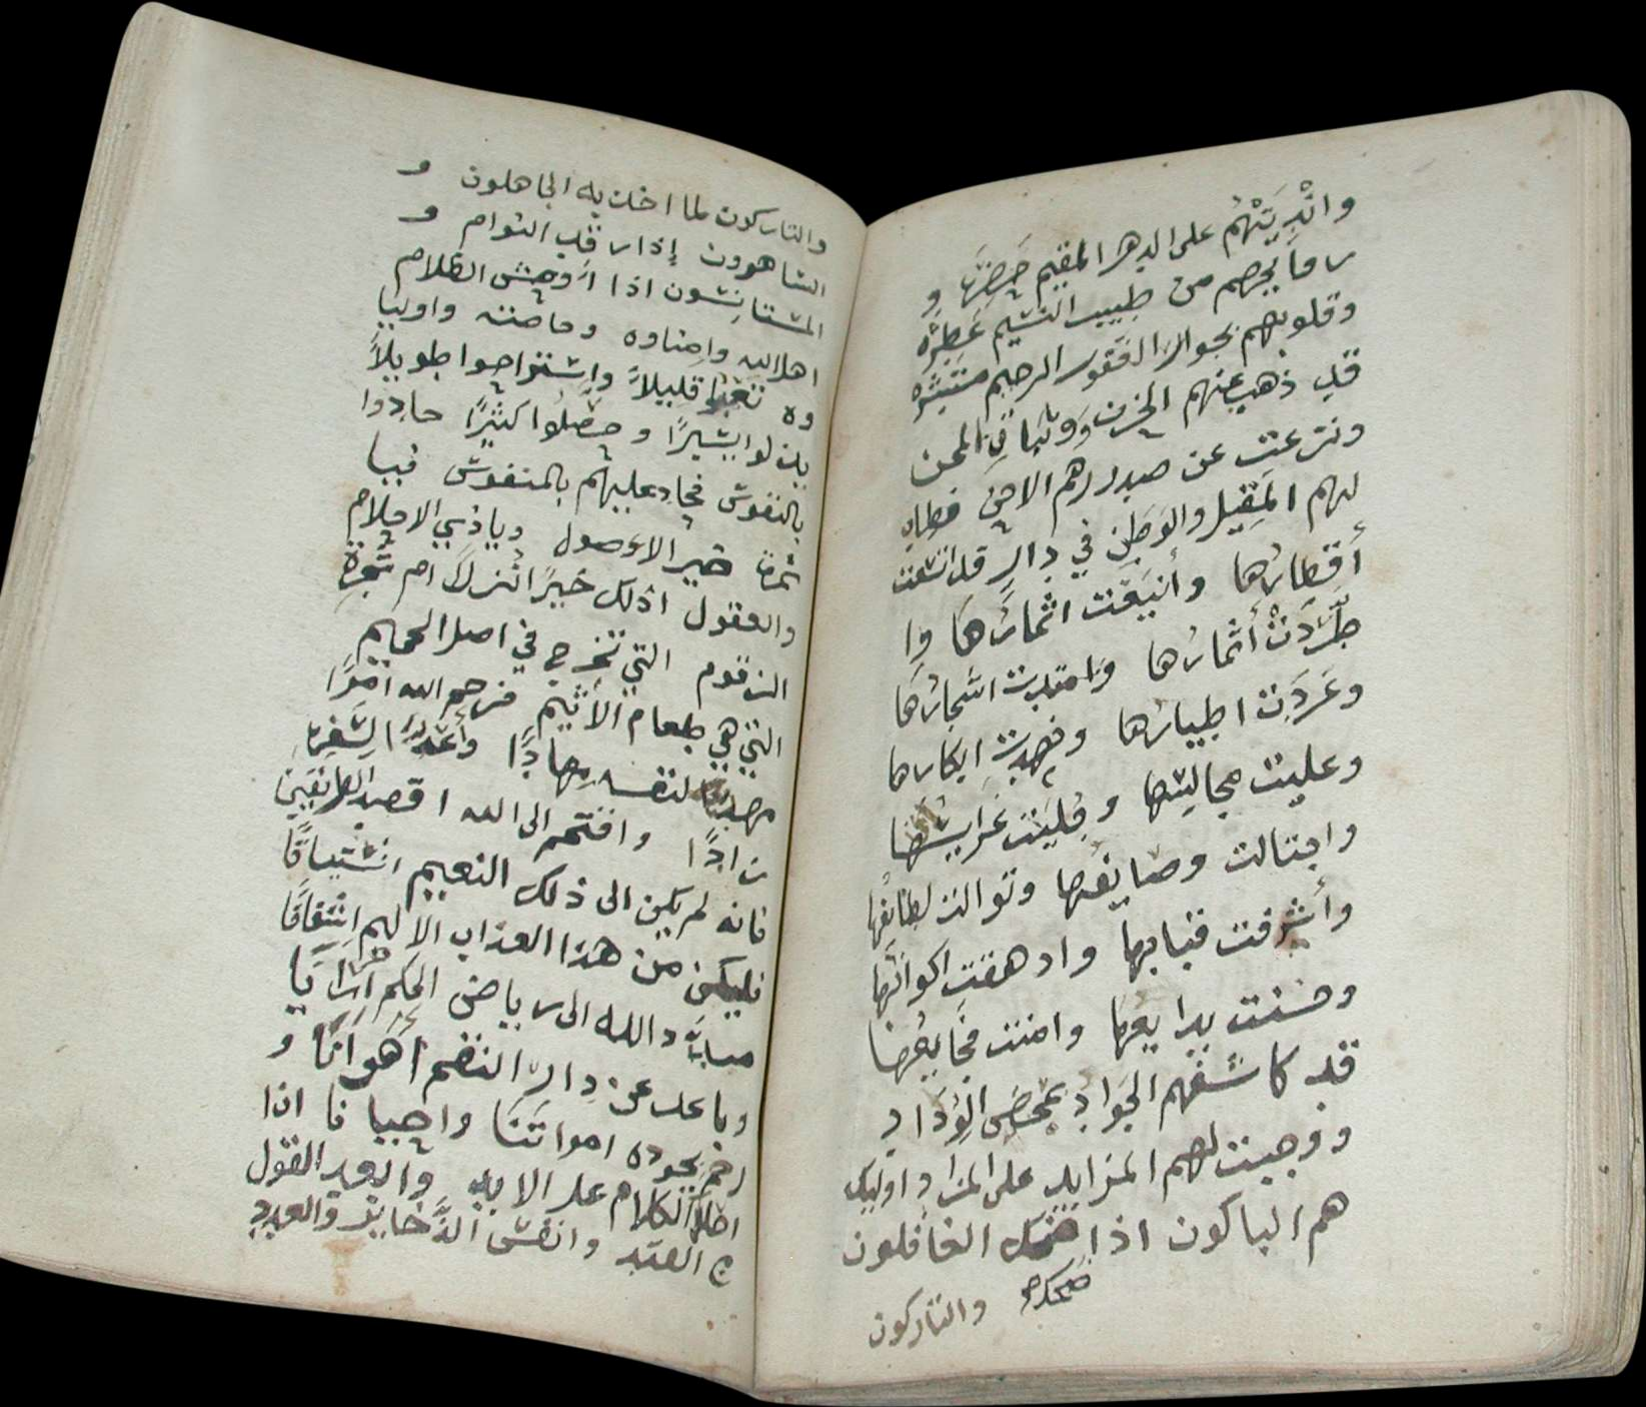 وانْدِيَتُهُم على الدهر المقيم خَضِرَة و
رماَيحهم من طيب النسيم عَطِرَه
وقلوبهم بجوار الغَفور الرحيم مستبشره
قد ذهب عنهم الحزن ووثبا ق المحن
ونزعت عن صدورهم الاحن فطاب
لهم المَقِيل والوَطن في دارٍ قد اتسعت
أقطارُها وأنيعَت اثمارُها وا
طَّرَدَتْ أنهارُها وامتدت اشجارُها
وغَرَدَت اطيارُها ونهدت ابكارها
وعليت مجالِسُها وجُليَت عَرايسُها
واجتالت وصايفُها وتوالت لطايفُها
وأشرفت قبابها وادهقت اكوابُها
وحسنت بدايعها وامنت فجايعُها
قد كاشفهم الجَوادُ بمحض الوِدَادِ
ووجبت لهم المزايد على المزاد اوليك
هم الباكون اذا ضحك الغافلون
ضحك
والتاركون
والتاركون لما اخلد يه الجاهلون و
الساهرون إذا رقد النوام و
المستانِسُون اذا اَوحش الظلام
اهل الله واحباوه وخاصته واوليا
وه تعبُوا قليلاً واِستراحوا طويلاً
بذلوا يسيرًا وحصَلُوا كثيرًا جادوا
بالنفوس فجاد عليهم بالمنفوس فيا
خير الاءصول وياذوي الاحلام
والعقول اذلك خيرُ اُنُزلَاً ام شَجَرة
الزقوم التي تخرج في اصل الجحيم
التي هي طعام الاَثيم فرحم الله امرًا
مهد لنفسه مهادًا وأعَدَّ للسفر
زادًا وافتحم الى الله اقصد الطريقين
فانه لم يكن الى ذلك النعيم اشتياقًا
فليكن من هذا العذاب الاليم اشفاقًا
الله الى رياض الحكم
وباعد عن دار النقم اهواَنَا و
رحم بجوده امواتَنَا واحيانا انا
احلا الكلام على الابد وابعد القول
العتد وانفس الذَّخاير والعدد